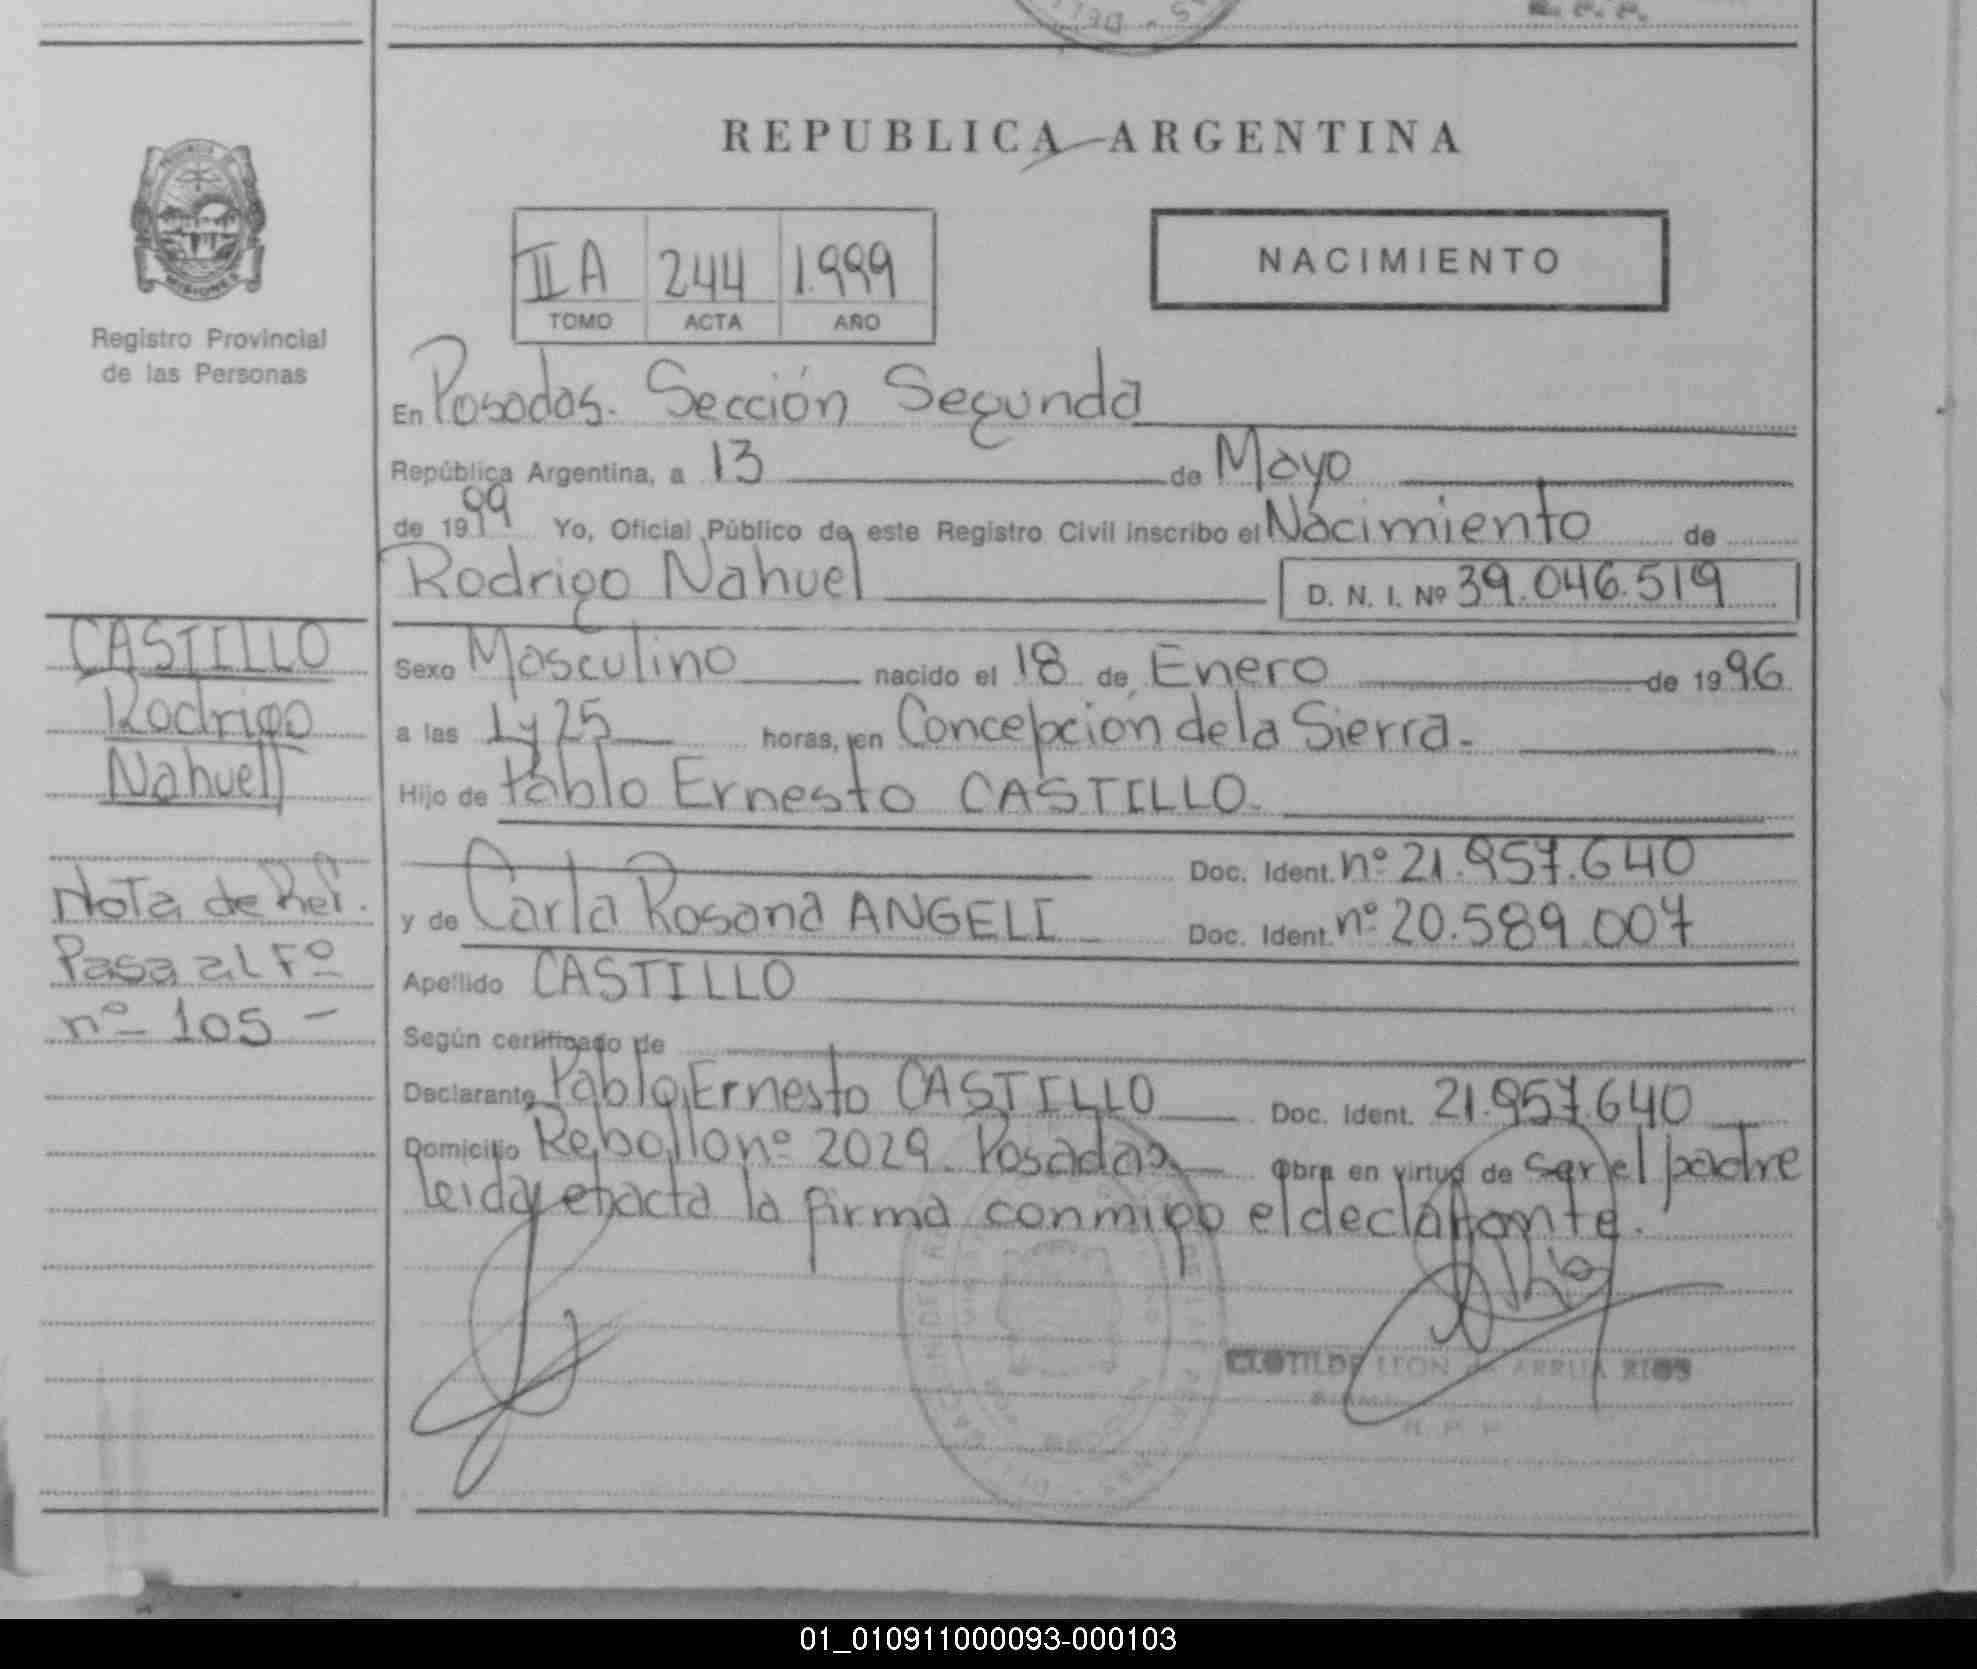 REPUBLICA ARGENTINA
MISIONES
Registro Provincial
de las Personas
IIA 244 1.999
TOMO ACTA AÑO
NACIMIENTO
En Posadas. Sección Segunda
República Argentina, a 13 de Mayo
de 1999 Yo, Oficial Público de este Registro Civil inscribo el Nacimiento de
Rodrigo Nahuel D. N. I. Nº 39.046.519
CASTILLO
Rodrigo
Nahuel
Sexo Masculino nacido el 18 de Enero de 1996
a las 1 y 25 horas, en Concepción de la Sierra.
Hijo de Pablo Ernesto CASTILLO.
Doc. Ident. nº 21.957.640
y de Carla Rosana ANGELI Doc. Ident. nº 20.589.007
Apellido CASTILLO
Nota de Ref.
Pasa al Fº
nº 105 -
Según certificado de
Declarante Pablo Ernesto CASTILLO Doc. Ident. 21.957.640
Domicilio Rebollo nº 2029. Posadas Obra en virtud de ser el padre
Leida el acta la firma conmigo el declarante.
CLOTILDE LEON ARRUA RIOS
01_010911000093-000103